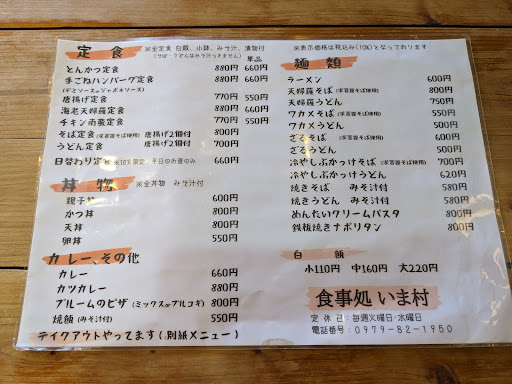 定食 ※全定食 白飯、小鉢、みそ汁、漬物付
(そば・うどんはみそ汁つきません) 単品
とんかつ定食 880円 660円
手ごねハンバーグ定食 880円 660円
(デミソースorジャポネソース)
唐揚げ定食 770円 550円
海老天婦羅定食 880円 660円
チキン南蛮定食 770円 550円
そば定食(求菩提そば使用) 唐揚げ2個付 800円
うどん定食 唐揚げ2個付 700円
日替わり定食 ※10%限定 平日のお昼のみ 660円
丼物 ※全丼物 みそ汁付
親子丼 600円
かつ丼 800円
天丼 800円
卵丼 550円
カレー、その他
カレー 660円
カツカレー 880円
ブルームのピザ(ミックスorプルコギ) 800円
焼飯(みそ汁付) 550円
テイクアウトやってます(別紙メニュー)
※表示価格は税込み(10%)となっております
麺類
ラーメン 600円
天婦羅そば(求菩提そば使用) 800円
天婦羅うどん 750円
ワカメそば(求菩提そば使用) 600円
ワカメうどん 500円
ざるそば(求菩提そば使用) 600円
ざるうどん 500円
冷やしぶっかけそば(求菩提そば使用) 700円
冷やしぶっかけうどん 620円
焼きそば みそ汁付 580円
焼きうどん みそ汁付 580円
めんたいクリームパスタ 800円
鉄板焼きナポリタン 800円
白飯
小110円 中160円 大220円
食事処 いま村
定休日:毎週火曜日・水曜日
電話番号:0979-82-1950